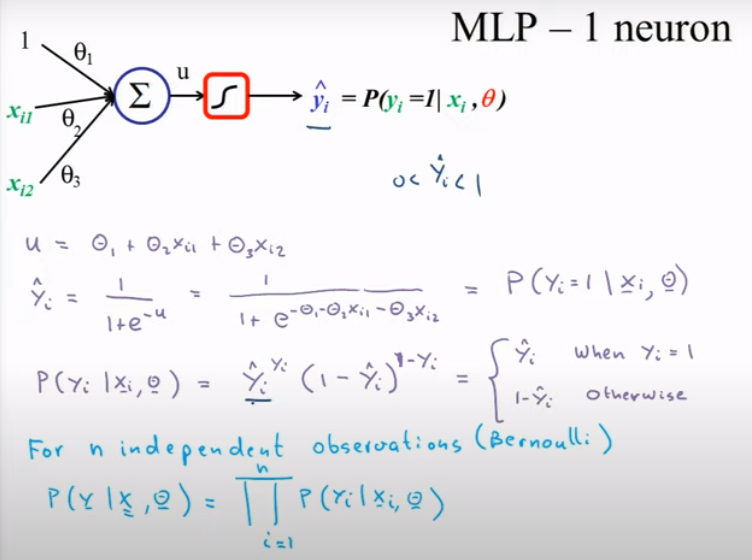 MLP – 1 neuron
1 θ₁
u
Σ ŷᵢ = P(yᵢ =1| xᵢ ,θ)
xᵢ₁ θ₂
xᵢ₂ θ₃
0< Ŷᵢ < 1
u = Θ₁ + Θ₂xᵢ₁ + Θ₃xᵢ₂
Ŷᵢ = 1/(1+e^(-u)) = 1/(1+ e^(-Θ₁-Θ₂xᵢ₁-Θ₃xᵢ₂)) = P(Yᵢ=1 | xᵢ, Θ)
P(Yᵢ |xᵢ,Θ) = Ŷᵢ^(Yᵢ) (1-Ŷᵢ)^(1-Yᵢ) = { Ŷᵢ when Yᵢ = 1
1-Ŷᵢ otherwise
For n independent observations (Bernoulli)
P(Y |X,Θ) = ∏ᵢ₌₁ⁿ P(Yᵢ|Xᵢ,Θ)